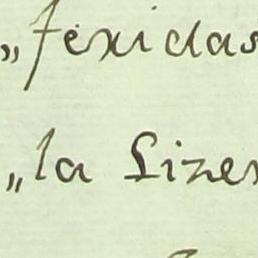 „fexidas
„la Lizen